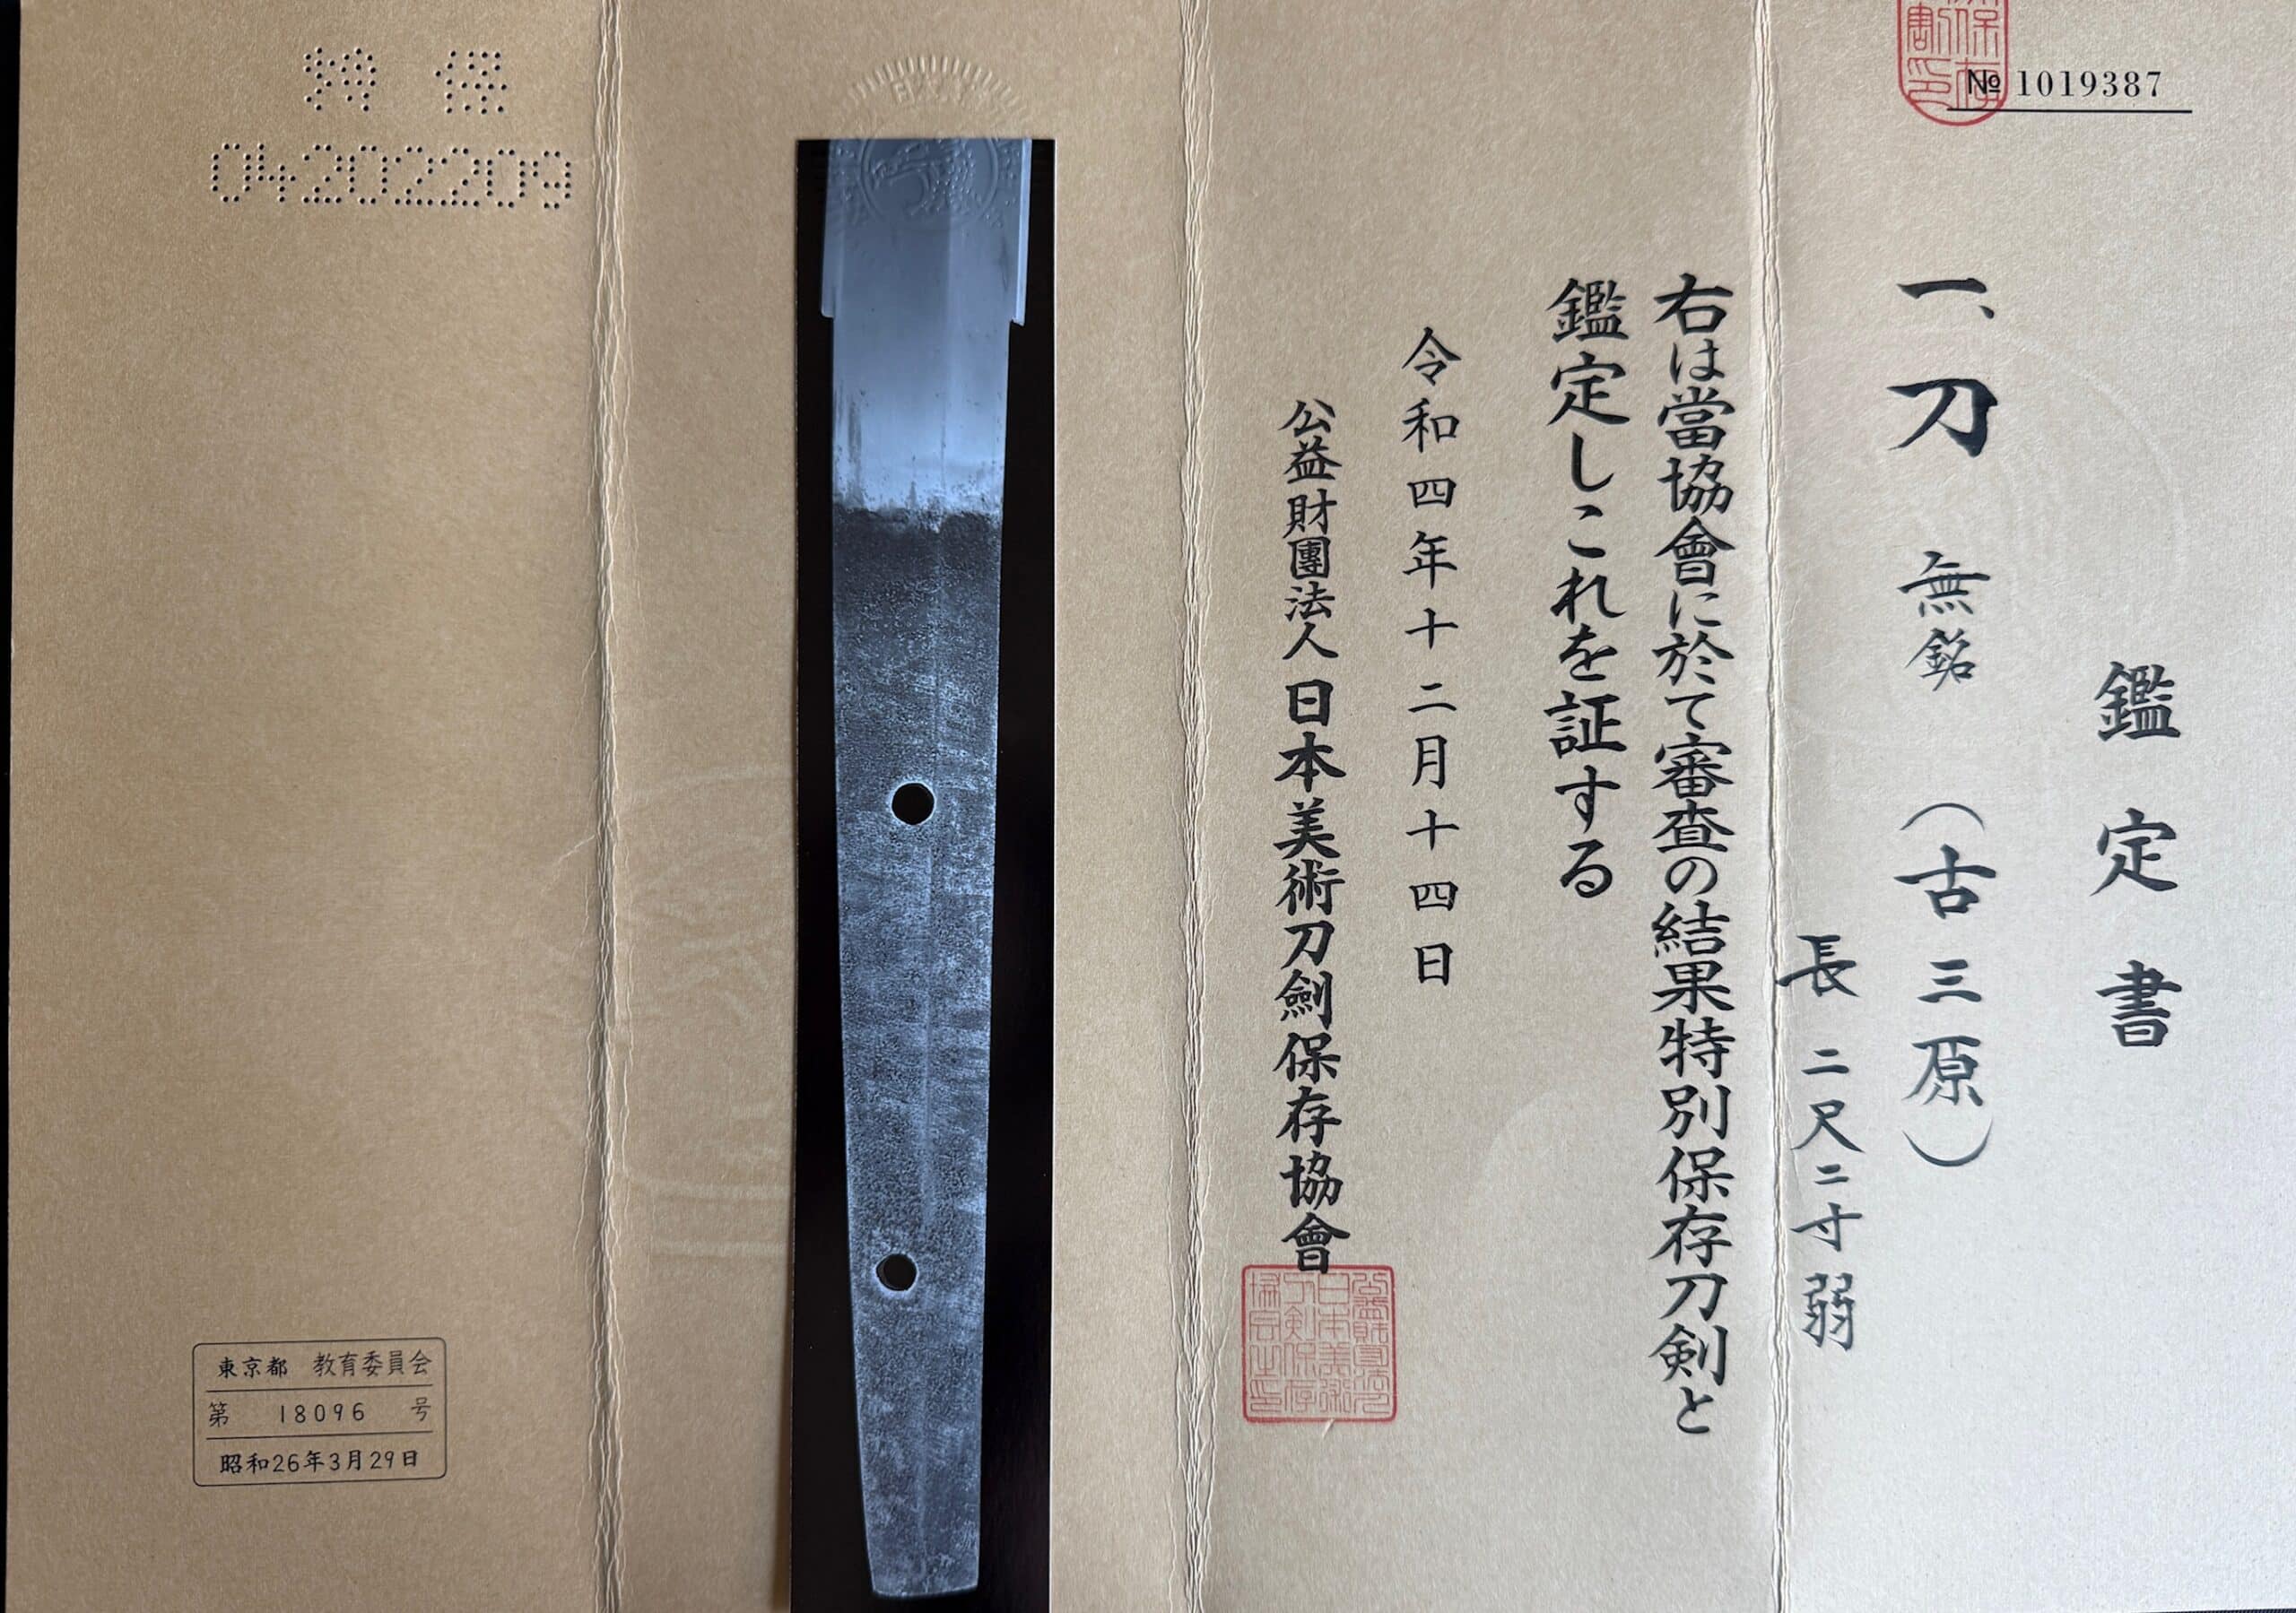 № 1019387
鑑定書
一、刀 無銘 (古三原)
長 二尺二寸弱
右は當協會に於て審査の結果特別保存刀剣と
鑑定しこれを証する
令和四年十二月十四日
公益財團法人日本美術刀劍保存協會
特 保
04202209
東京都 教育委員会
第 18096 号
昭和26年3月29日